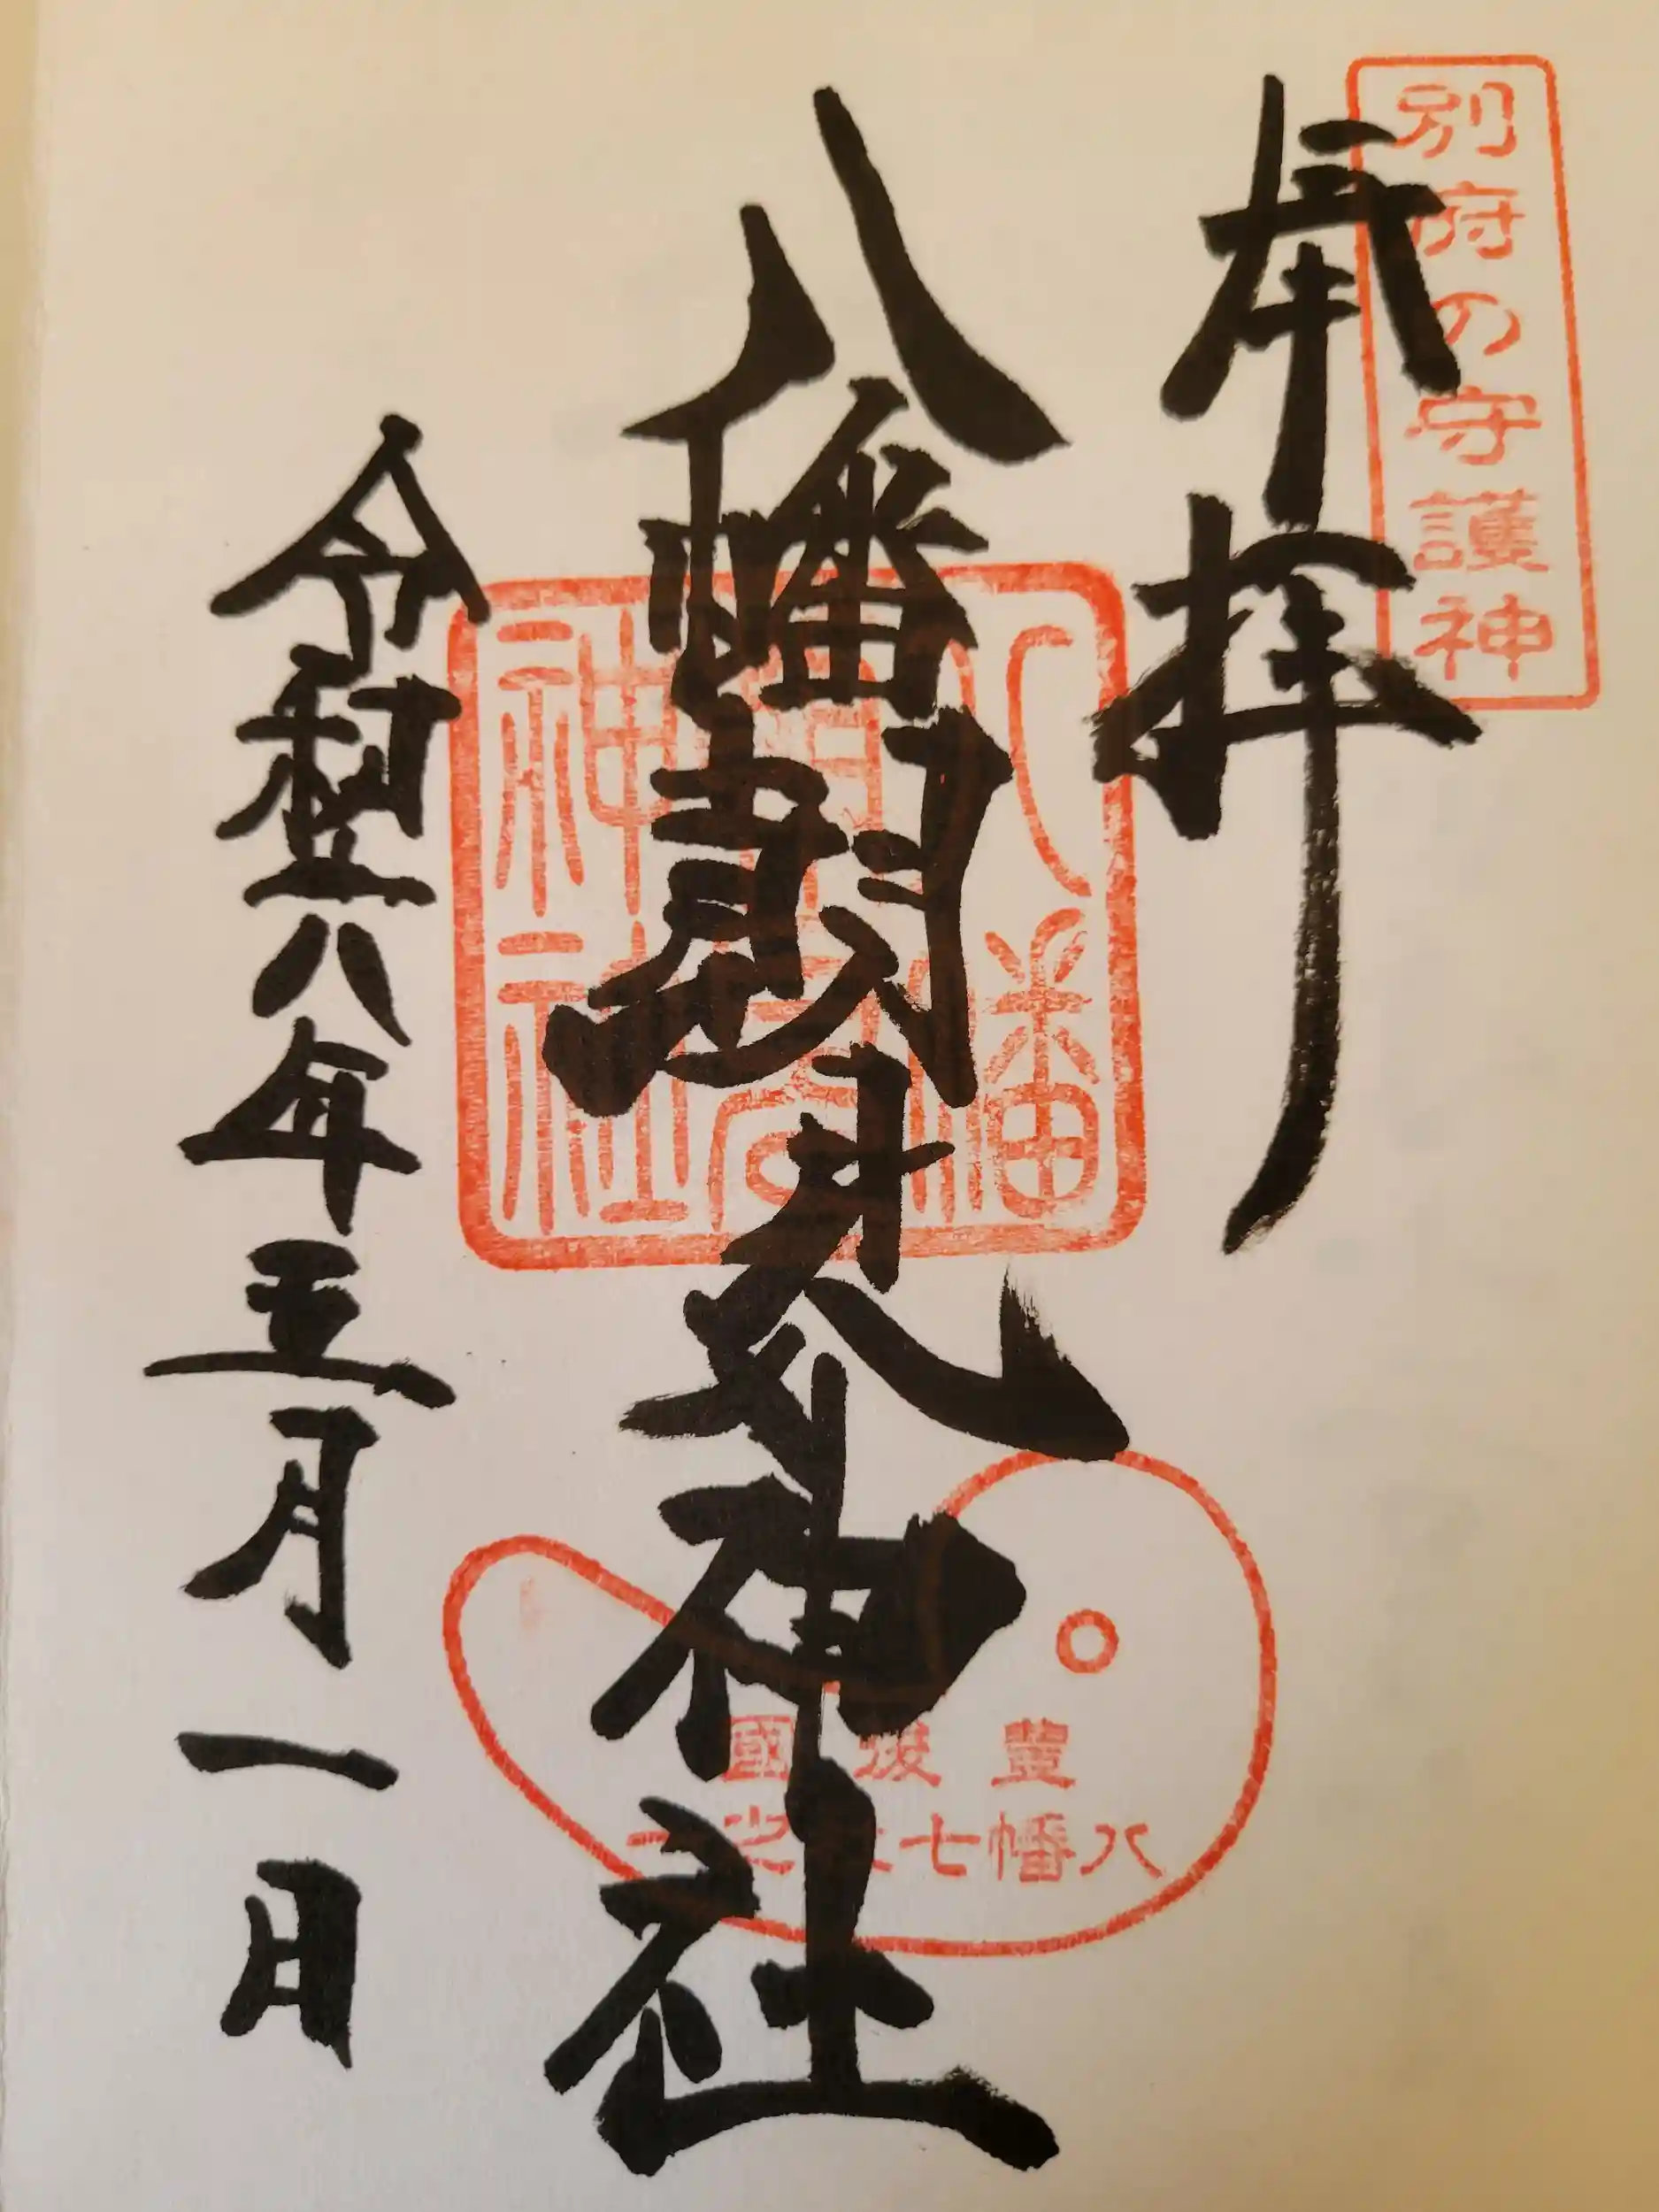 別府の守護神
奉拝
八幡朝見神社
八幡朝見神社
豐後國
八幡七社之一
令和六年五月一日